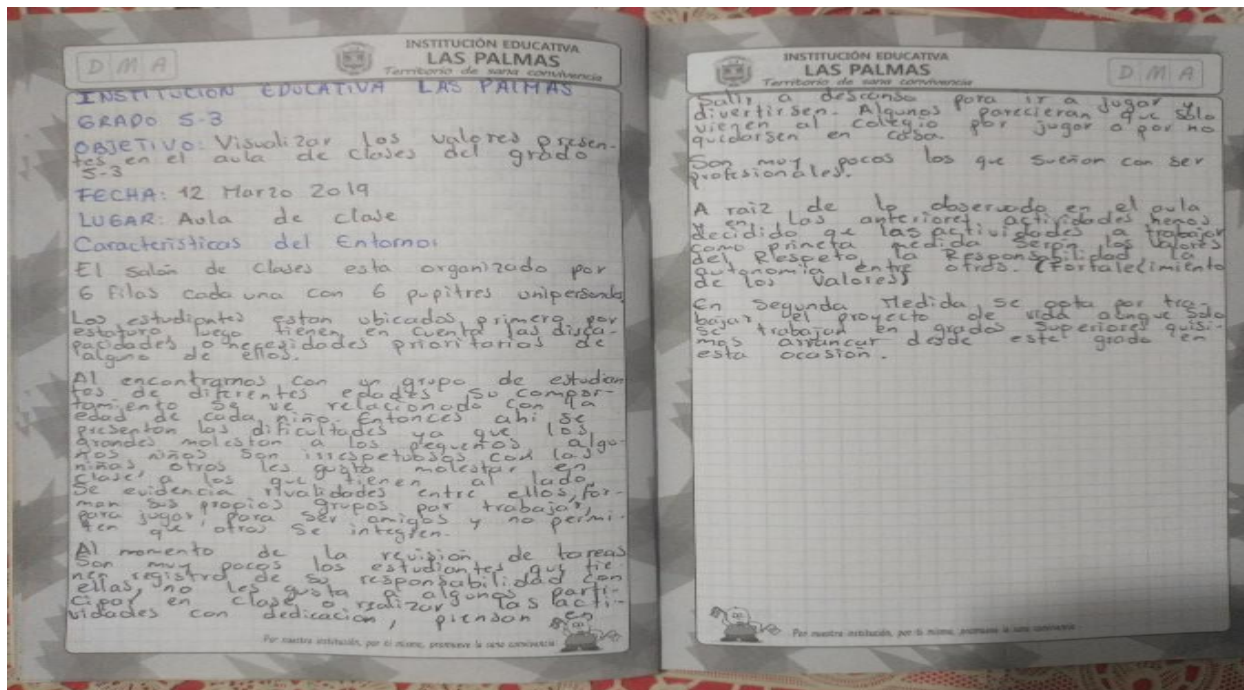 D M A
INSTITUCIÓN EDUCATIVA
LAS PALMAS
Territorio de sana convivencia
INSTITUCION EDUCATIVA LAS PALMAS
GRADO 5-3
OBJETIVO: Visualizar los valores presen-
tes en el aula de clases del grado
5-3
FECHA: 12 Marzo 2019
LUGAR: Aula de clase
Caracteristicas del Entorno:
El salón de clases esta organizado por
6 filas cada una con 6 pupitres unipersonales
Los estudiantes estan ubicados primero por
estatura luego tienen en cuenta las disca-
pacidades o necesidades prioritarias de
alguno de ellos.
Al encontrarnos con un grupo de estudian
tes de diferentes edades su compor-
tamiento se ve relacionado con la
edad de cada niño. Entonces ahi se
presentan las dificultades ya que los
grandes molestan a los pequeños algu-
nos niños son irrespetuosos con las
niñas, otros les gusta molestar en
clase, a los que tienen al lado.
Se evidencia rivalidades entre ellos, for-
man sus propios grupos par trabajar,
para jugar, para ser amigos y no permi-
ten que otros se integren.
Al momento de la revisión de tareas
Son muy pocos los estudiantes que tie-
nen registro de su responsabilidad con
ellas, no les gusta a algunos parti-
cipar en clase, o realizar las acti-
vidades con dedicación, piensan en
Por nuestra institución, por ti mismo, promueve la sana convivencia
INSTITUCIÓN EDUCATIVA
LAS PALMAS
Territorio de sana convivencia
D M A
Salir a descanso para ir a jugar y
divertirsen. Algunos parecieran que sólo
vienen al colegio por jugar o por no
quedarsen en casa.
Son muy pocos los que sueñan con ser
profesionales.
A raiz de lo observado en el aula
y en las anteriores actividades hemos
decidido qe las actividades a trabajar
como primera medida serán los valores
del Respeto, la Responsabilidad, la
autonomia entre otros. (Fortalecimiento
de los valores)
En Segunda Medida, se opta por tra-
bajar el proyecto de vida aunque solo
se trabajan en grados superiores quisi-
mos arrancar desde este grado en
esta ocasión.
Por nuestra institución, por ti mismo, promueve la sana convivencia